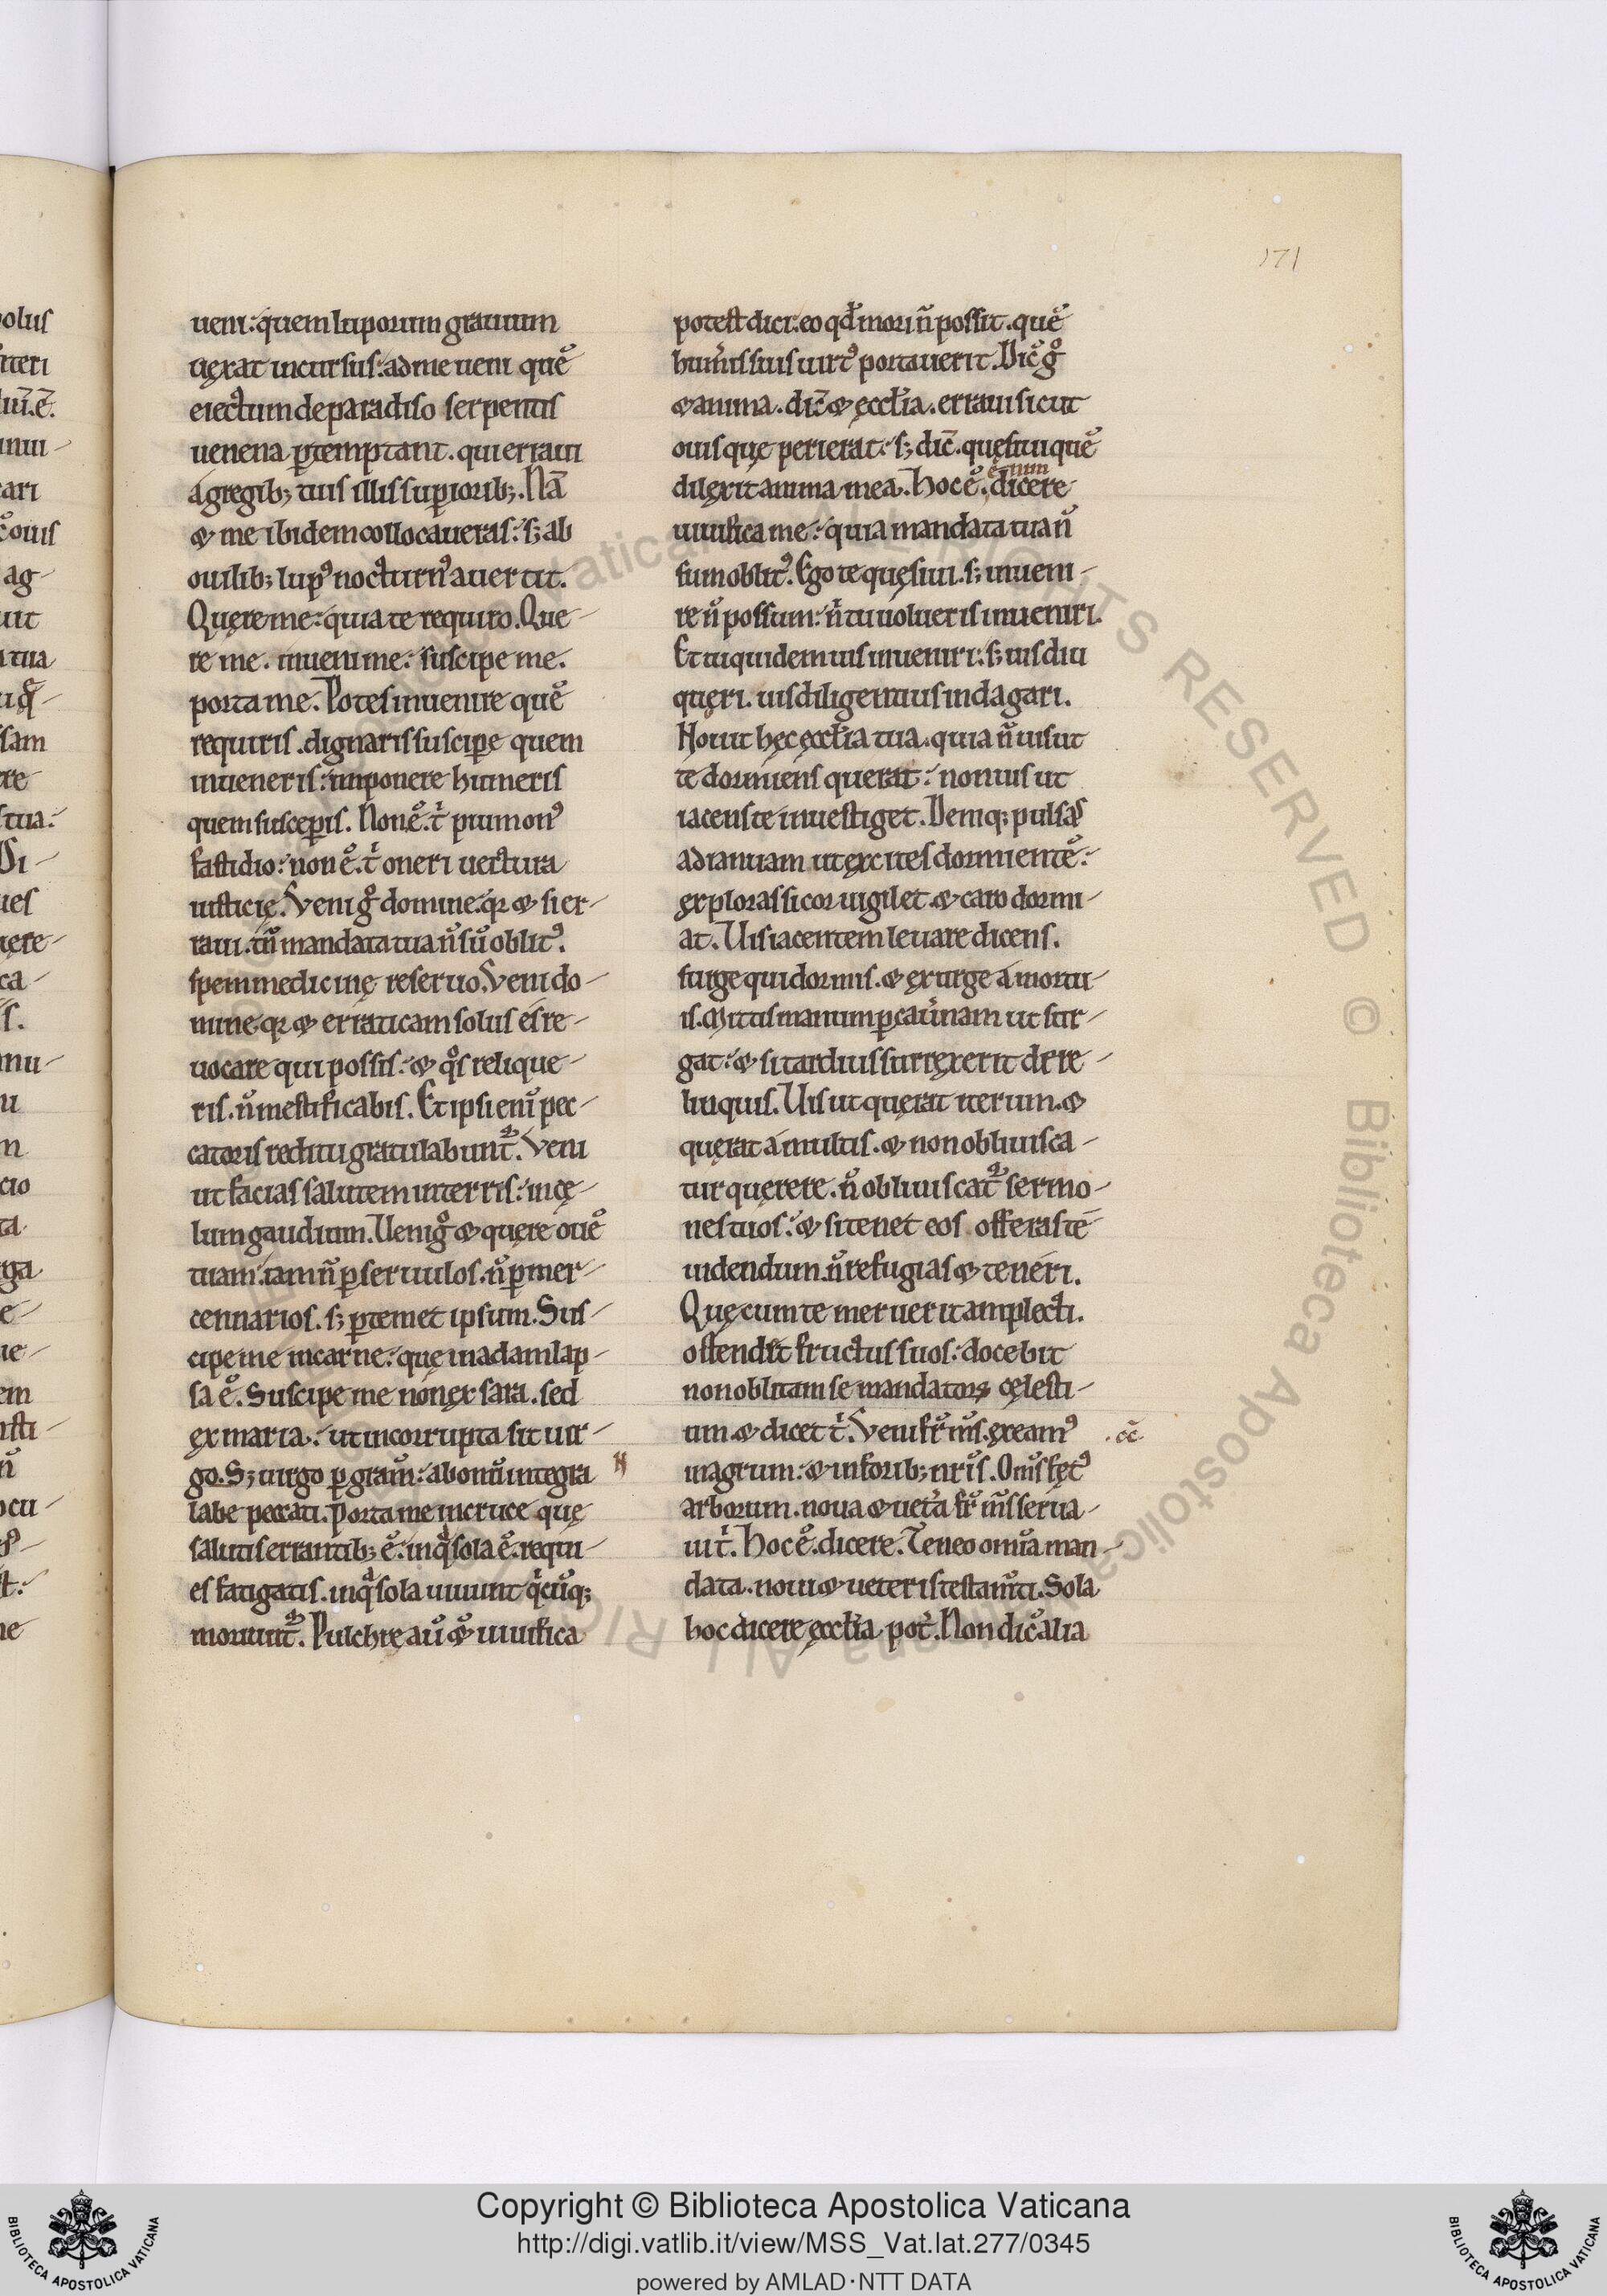 171
ueni: quem luporum grauium
uęxat incursus: ad me ueni quē
eiectum de paradiso serpentis
uenena ꝑtemptant. qui erraui
a gregib; tuis illis supiorib;. Nā
& me ibidem collocaueras: s; ab
ouilib; lupꝰ nocturnꝰ auertit.
Quęre me: quia te requiro. Que-
re me. inueni me: suscipe me.
porta me. Potes inuenire quē
requiris. dignaris suscipe quem
inueneris: imponere humeris
quem susceꝑis. Non ē. t̍ pium onꝰ
fastidio: non ē. t̍ oneri uectura
iusticię. Veni gͦ domine. qr & si er-
raui. tn̄ mandata tua n̄ sū oblitꝰ.
spem medicinę reseruo. Veni do-
mine. qr & erraticam solus es re-
uocare qui possis: & qͦs relique-
ris. n̄ mestificabis. Et ipsi enī pec-
catoris reditu gratulabunt᷑. Veni
ut facias salutem in terris: in cę-
lum gaudium. Ueni gͦ & quęre ouē
tuam. iam n̄ ꝑ seruulos. n̄ ꝑ mer-
cennarios. s; ꝑ temet ipsum. Sus-
cipe me in carne: quę in adam lap-
sa ē. Suscipe me non ex sara. sed
ęx maria: ut incorrupta sit uir-
go. S; uirgo ꝑ gram̄: ab omī integra
labe peccati. Porta me in cruce quę
salutis errantib; ē: in qͣ sola ē. requi-
es fatigatis. in qͣ sola uiuunt qͥcūq;
moriunt᷑. Pulchrę aū & uiuifica
potest dici: eo qd̄ mori n̄ possit. quē
hum̄is suis uirtꝰ portauerit. Dic̄ gͦ
& anima. dic̄ & ęccl̄ia. erraui sicut
ouis quę perierat: s; dic̄. quęsiui quē
dilęxit anima mea. Hoc ē. enim dicere
uiuifica me: quia mandata tua n̄
sum oblitꝰ. Ego te quęsiui. s; inueni-
re n̄ possum: n̍ tu uolueris inueniri.
Et tu quidem uis inueniri: s; uis diu
quęri. uis diligentius indagari.
Nouit hęc ęccl̄ia tua. quia n̄ uis ut
te dormiens querat: non uis ut
iacens te inuestiget. Deniq; pulsas
ad ianuam ut ęxcites dormientē:
ęxploras si cor uigilet. & caro dormi-
at. Uis iacentem leuare dicens.
surge qui dormis. & ęxurge a mortu-
is. Mittis manum ꝑ cau̍nam ut sur-
gat: & si tardius surręxerit dere-
linquis. Uis ut quęrat iterum. &
quęrat a multis. & non obliuisca-
tur quęrere. n̄ obliuiscat᷑ sermo-
nes tuos: & si tenet eos offeras te
uidendum. n̄ refugias & teneri.
Quę cum te meruerit amplecti.
ostendet fructus suos: docebit
non oblitam se mandatoꝝ cęlesti-
um. & dicet t̍. Veni fr̄ m̄s. ęxeamꝰ .cc̄.
in agrum: & in forib; nr̄is. Om̄s fętꝰ
arborum. noua & uet̍a fr̄ m̄s serua-
ui t̍. Hoc ē. dicere. Teneo omīa man-
data. noui & ueteris testam̄ti. Sola
hoc dicere ęccl̄ia pot̍. Non dic̄ alia
Copyright © Biblioteca Apostolica Vaticana
http://digi.vatlib.it/view/MSS_Vat.lat.277/0345
powered by AMLAD·NTT DATA